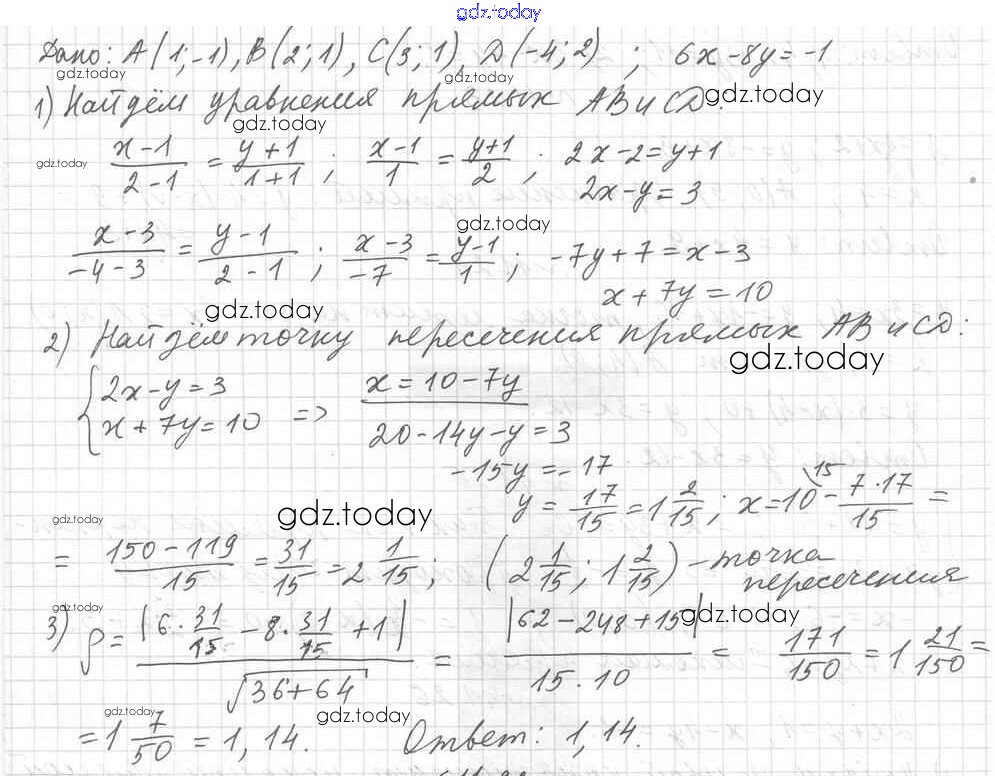 gdz.today
Дано: A(1;-1), B(2;1), C(3;1), D(-4;2) ; 6x-8y=-1
gdz.today gdz.today
1) Найдём уравнения прямых AB и CD: gdz.today
gdz.today
gdz.today (x-1)/(2-1) = (y+1)/(1+1) ; (x-1)/1 = (y+1)/2 ; 2x-2=y+1
2x-y=3
gdz.today
(x-3)/(-4-3) = (y-1)/(2-1) ; (x-3)/(-7) = (y-1)/1 ; -7y+7=x-3
x+7y=10
gdz.today
2) Найдём точку пересечения прямых AB и CD:
gdz.today
{2x-y=3 x=10-7y
x+7y=10 => 20-14y-y=3
-15y=-17
gdz.today gdz.today y = 17/15 = 1 2/15 ; x=10 15 - (7·17)/15 =
= (150-119)/15 = 31/15 = 2 1/15 ; (2 1/15 ; 1 2/15) - точка
пересечения
gdz.today gdz.today
3) ρ = |6·31/15 - 8·31/15 + 1| / √(36+64) = |62-248+15| / (15·10) = 171/150 = 1 21/150 =
gdz.today gdz.today
= 1 7/50 = 1,14. Ответ: 1,14.